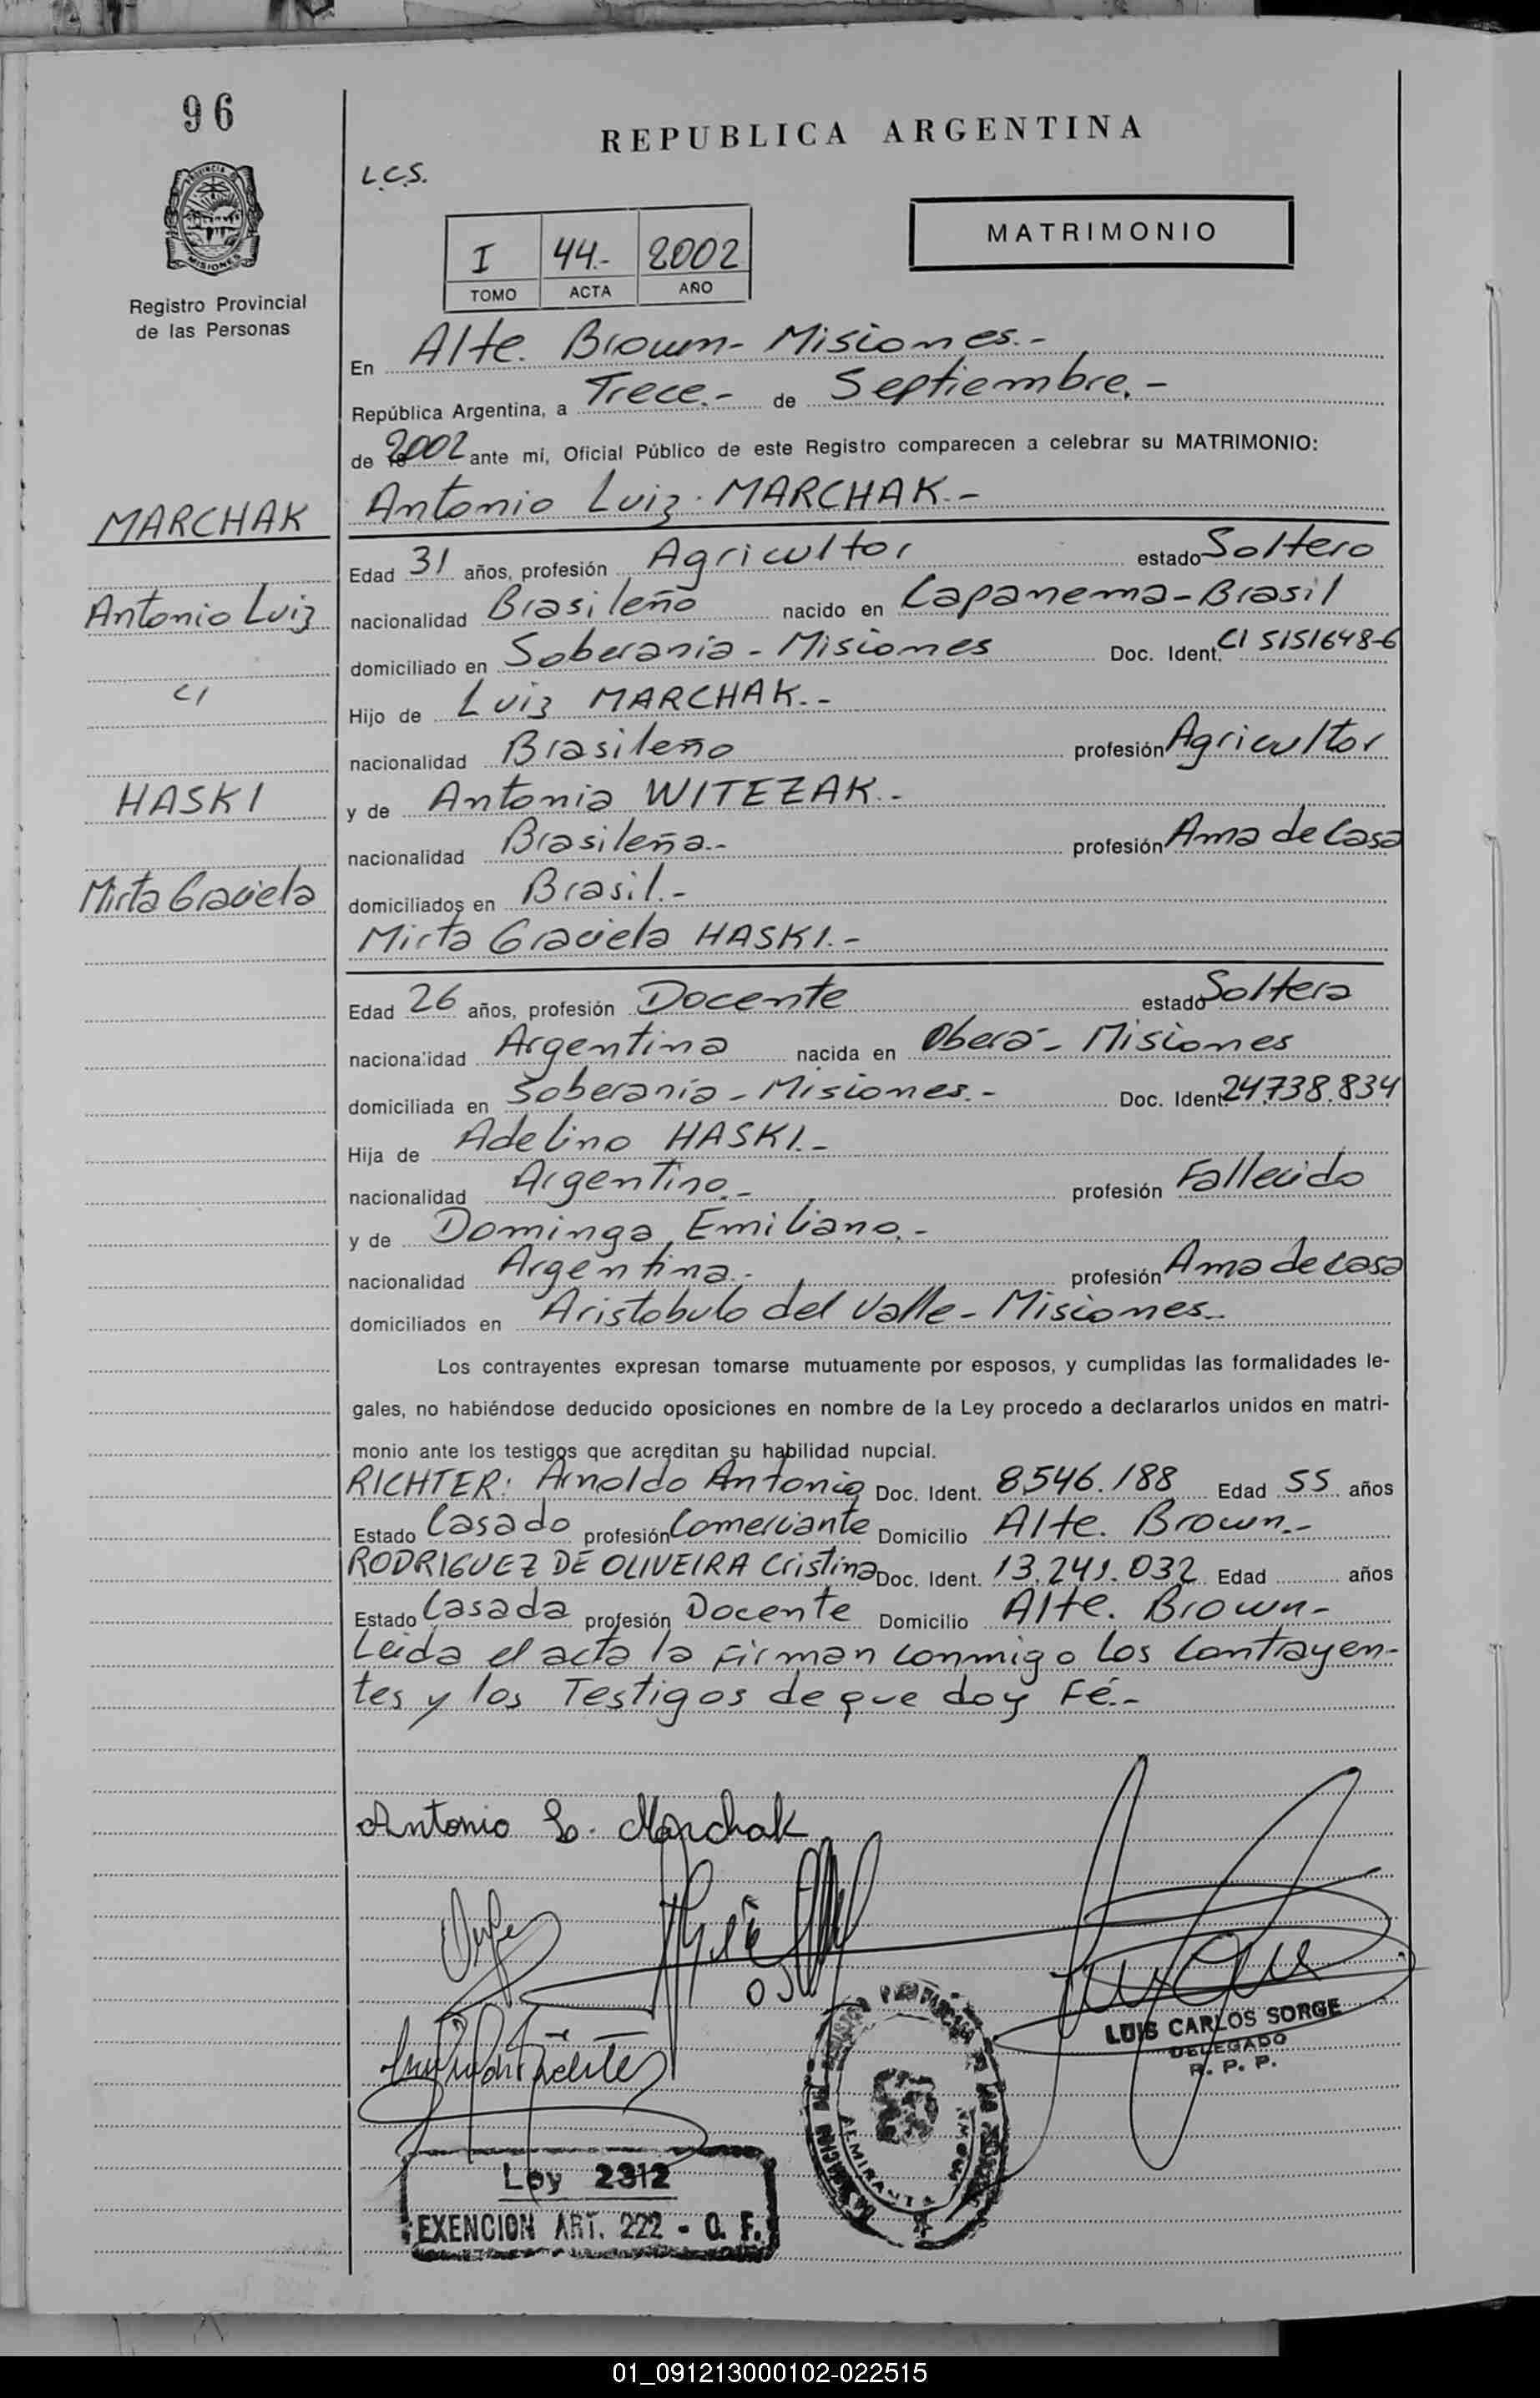 96
REPUBLICA ARGENTINA
L.C.S.
PROVINCIA DE
MISIONES
Registro Provincial
de las Personas
I 44.- 2002
TOMO ACTA AÑO
MATRIMONIO
En Alte. Brown- Misiones.-
República Argentina, a Trece.- de Septiembre.-
de 2002 ante mí, Oficial Público de este Registro comparecen a celebrar su MATRIMONIO:
MARCHAK
Antonio Luiz
CI
HASKI
Mirta Graciela
Antonio Luiz MARCHAK.-
Edad 31 años, profesión Agricultor estado Soltero
nacionalidad Brasileño nacido en Capanema-Brasil
domiciliado en Soberanía - Misiones Doc. Ident. CI 5151648-6
Hijo de Luiz MARCHAK.-
nacionalidad Brasileño profesión Agricultor
y de Antonia WITEZAK.-
nacionalidad Brasileña.- profesión Ama de Casa
domiciliados en Brasil.-
Mirta Graciela HASKI.-
Edad 26 años, profesión Docente estado Soltera
nacionalidad Argentina nacida en Oberá- Misiones
domiciliada en Soberanía - Misiones.- Doc. Ident. 24.738.834
Hija de Adelino HASKI.-
nacionalidad Argentino.- profesión Fallecido
y de Dominga Emiliano.-
nacionalidad Argentina.- profesión Ama de casa
domiciliados en Aristobulo del Valle- Misiones.-
Los contrayentes expresan tomarse mutuamente por esposos, y cumplidas las formalidades le-
gales, no habiéndose deducido oposiciones en nombre de la Ley procedo a declararlos unidos en matri-
monio ante los testigos que acreditan su habilidad nupcial.
RICHTER: Arnoldo Antonio Doc. Ident. 8.546.188 Edad 55 años
Estado Casado profesión Comerciante Domicilio Alte. Brown.-
RODRIGUEZ DE OLIVEIRA Cristina Doc. Ident. 13.241.032 Edad años
Estado Casada profesión Docente Domicilio Alte. Brown-
Leida el acta la firman conmigo los Contrayen-
tes y los Testigos de que doy Fé.-
Antonio L. Marchak
LUIS CARLOS SORGE
DELEGADO
R. P. P.
Ley 2312
EXENCION ART. 222 - O. F.
01_091213000102-022515